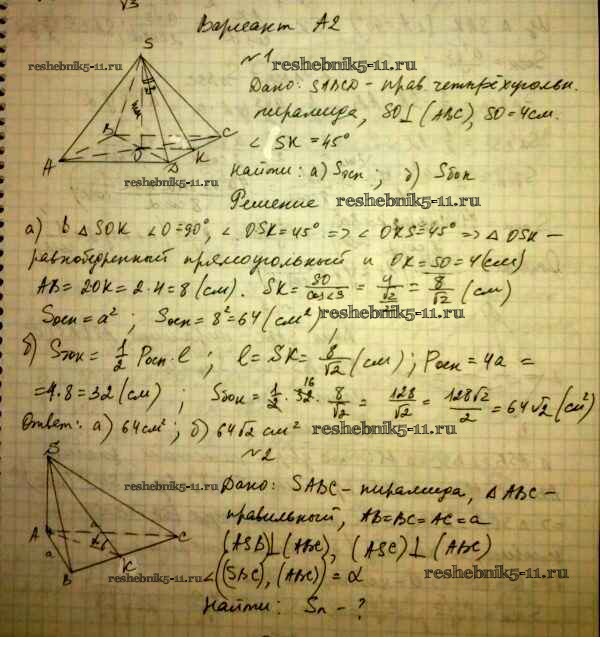 √3
Вариант А2
№1
reshebnik5-11.ru
reshebnik5-11.ru
Дано: SABCD - прав четырёхугольн.
пирамида, SO⊥(ABC), SO=4см.
∠ SK=45°
Найти: а) Sосн; б) Sбок
reshebnik5-11.ru
Решение reshebnik5-11.ru
S
B
C
A
O
K
D
а) В △SOK ∠O=90°, ∠OSK=45° => ∠OKS=45° => △OSK -
равнобедренный прямоугольный и OK=SO=4(см)
AB=2OK=2·4=8(см). SK= SO/cos∠S = 4/(√2/2) = 8/√2 (см)
Sосн=a², Sосн=8²=64(см²)
reshebnik5-11.ru
б) Sбок = 1/2 Pосн·l; l=SK= 8/√2 (см); Pосн=4a =
=4·8=32(см); Sбок= 1/2 · 32 16 · 8/√2 = 128/√2 = 128√2/2 = 64√2(см²)
Ответ: а) 64см²; б) 64√2 см² reshebnik5-11.ru
№2
reshebnik5-11.ru
Дано: SABC - пирамида, △ABC -
правильный, AB=BC=AC=a
(ASB)⊥(ABC), (ASC)⊥(ABC)
∠((SBC),(ABC))=α
reshebnik5-11.ru
reshebnik5-11.ru
Найти: Sп - ?
S
A
C
a
B
K
reshebnik5-11.ru